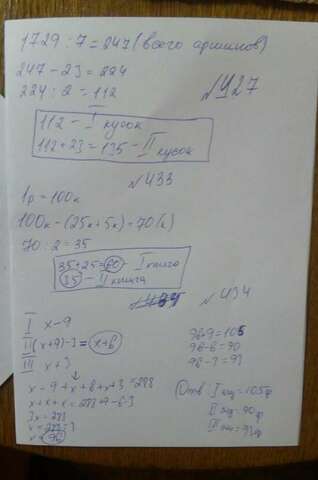 1729 : 7 = 247 (всего аршинов)
247 - 23 = 224
224 : 2 = 112
№427
112 - I кусок
112 + 23 = 135 - II кусок
№433
1р = 100к
100к - (25к + 5к) = 70 (к)
70 : 2 = 35
35 + 25 = 60 - I книга
35 - II книга
№434
I x - 9
II (x + 9) - 3 = x + 6
III x + 3
x - 9 + x + 6 + x + 3 = 288
x + x + x = 273 + 9 - 6 - 3
3x = 273
96 + 9 = 105
96 - 6 = 90
96 - 3 = 93
Отв: I = 105р
II = 90р
III = 93р